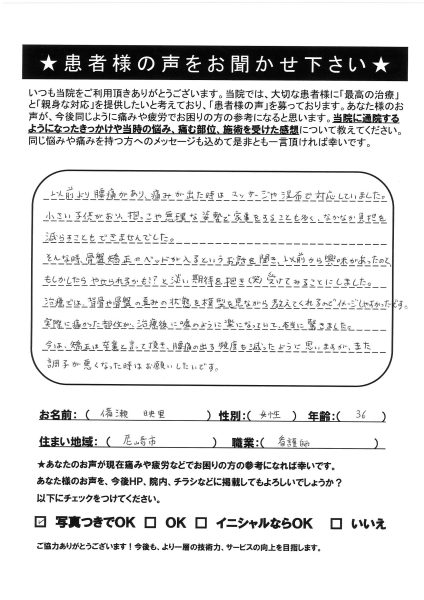 ★患者様の声をお聞かせ下さい★
いつも当院をご利用頂きありがとうございます。当院では、大切な患者様に「最高の治療」
と「親身な対応」を提供したいと考えており、「患者様の声」を募っております。あなた様のお
声が、今後同じように痛みや疲労でお困りの方の参考になると思います。当院に通院する
ようになったきっかけや当時の悩み、痛む部位、施術を受けた感想について教えてください。
同じ悩みや痛みを持つ方へのメッセージも込めて是非とも一言頂ければ幸いです。
以前より腰痛があり、痛みが出た時はマッサージや湿布で対応していました。
小さい子供がおり、抱っこや無理な姿勢で家事をすることも多く、なかなか負担を
減らすこともできませんでした。
そんな時、骨盤矯正のベッドが入るというお話を聞き、以前から興味があったので、
もしかしたらやせられるかも!?と淡い期待を抱き(笑)受けてみることにしました。
治療では、背骨や骨盤の歪みの状態を模型を見ながら教えてくれるのでイメージしやすかったです。
実際に痛かった部位が、治療後に嘘のように楽になっていて、本当に驚きました。
今は、矯正は卒業と言って頂き、腰痛の出る頻度も減ったように思いますが、また
調子が悪くなった時はお願いしたいです。
お名前:( 瀬 映里 ) 性別:( 女性 ) 年齢:( 36 )
住まい地域:( 尼崎市 ) 職業:( 看護師 )
★あなたのお声が現在痛みや疲労などでお困りの方の参考になれば幸いです。
あなた様のお声を、今後HP、院内、チラシなどに掲載してもよろしいでしょうか?
以下にチェックをつけてください。
☑ 写真つきでOK □ OK □ イニシャルならOK □ いいえ
ご協力ありがとうございます!今後も、より一層の技術力、サービスの向上を目指します。